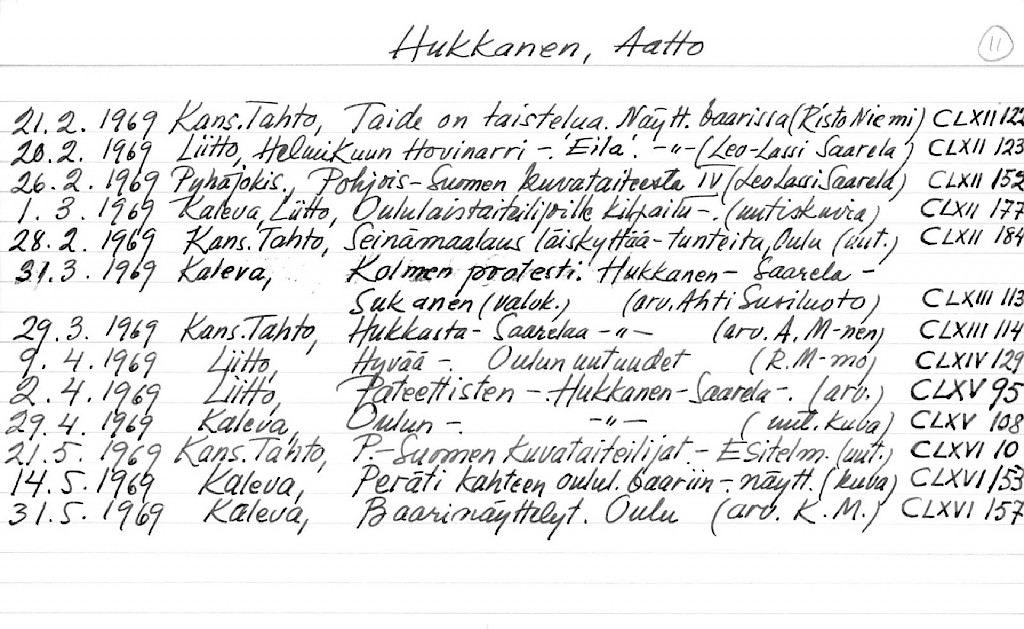 Hukkanen, Aatto
11
21.2. 1969 Kans.Tahto, Taide on taistelua. Näytt. baarissa (Risto Niemi) CLXII 122
20.2. 1969 Liitto, Helmikuun Hovinarri -. Eila. -"- (Leo-Lassi Saarela) CLXII 123
26.2. 1969 Pyhäjokis., Pohjois-Suomen kuvataiteesta IV (Leo Lassi Saarela) CLXII 152
1. 3. 1969 Kaleva, Liitto, Oululaistaiteilijoille kilpailu -. (uutiskuvia) CLXII 177
28.2. 1969 Kans.Tahto, Seinämaalaus läiskyttää-tunteita, Oulu (uut.) CLXII 184
31.3. 1969 Kaleva, Kolmen protesti. Hukkanen - Saarela -
Sukanen (valok.) (arv. Ahti Susiluoto) CLXIII 113
29.3. 1969 Kans.Tahto, Hukkasta - Saarelaa -"- (arv. A. M-nen) CLXIII 114
9. 4. 1969 Liitto, Hyvää -. Oulun uutuudet (R.M-mo) CLXIV 129
2. 4. 1969 Liitto, Pateettisten - Hukkanen - Saarela -. (arv.) CLXV 95
29.4. 1969 Kaleva, Oulun -. -"- (uut. kuva) CLXV 108
21.5. 1969 Kans.Tahto, P.-Suomen kuvataiteilijat - Esitelm. (uut.) CLXVI 10
14.5. 1969 Kaleva, Peräti kahteen oulul. baariin -. näytt. (kuva) CLXVI 153
31.5. 1969 Kaleva, Baarinäyttelyt. Oulu (arv. K.M.) CLXVI 157